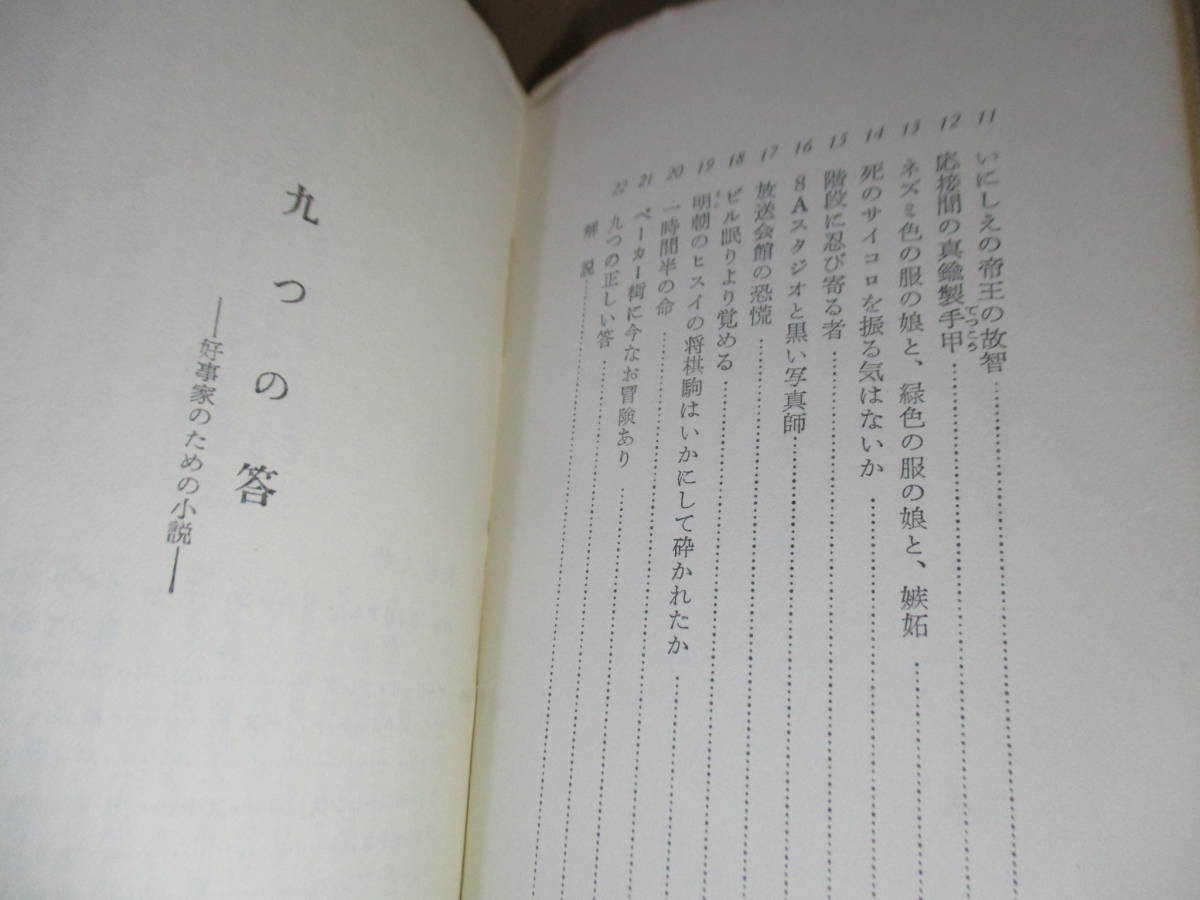 11 いにしえの帝王の故智
12 応接間の真鍮製手甲
てつこう
13 ネズミ色の服の娘と、緑色の服の娘と、嫉妬
14 死のサイコロを振る気はないか
15 階段に忍び寄る者
16 8Aスタジオと黒い写真師
17 放送会館の恐慌
18 ビル眠りより覚める
19 明朝のヒスイの将棋駒はいかにして砕かれたか
20 一時間半の命
21 ベーカー街に今なお冒険あり
22 九つの正しい答
解説
九つの答
―好事家のための小説―